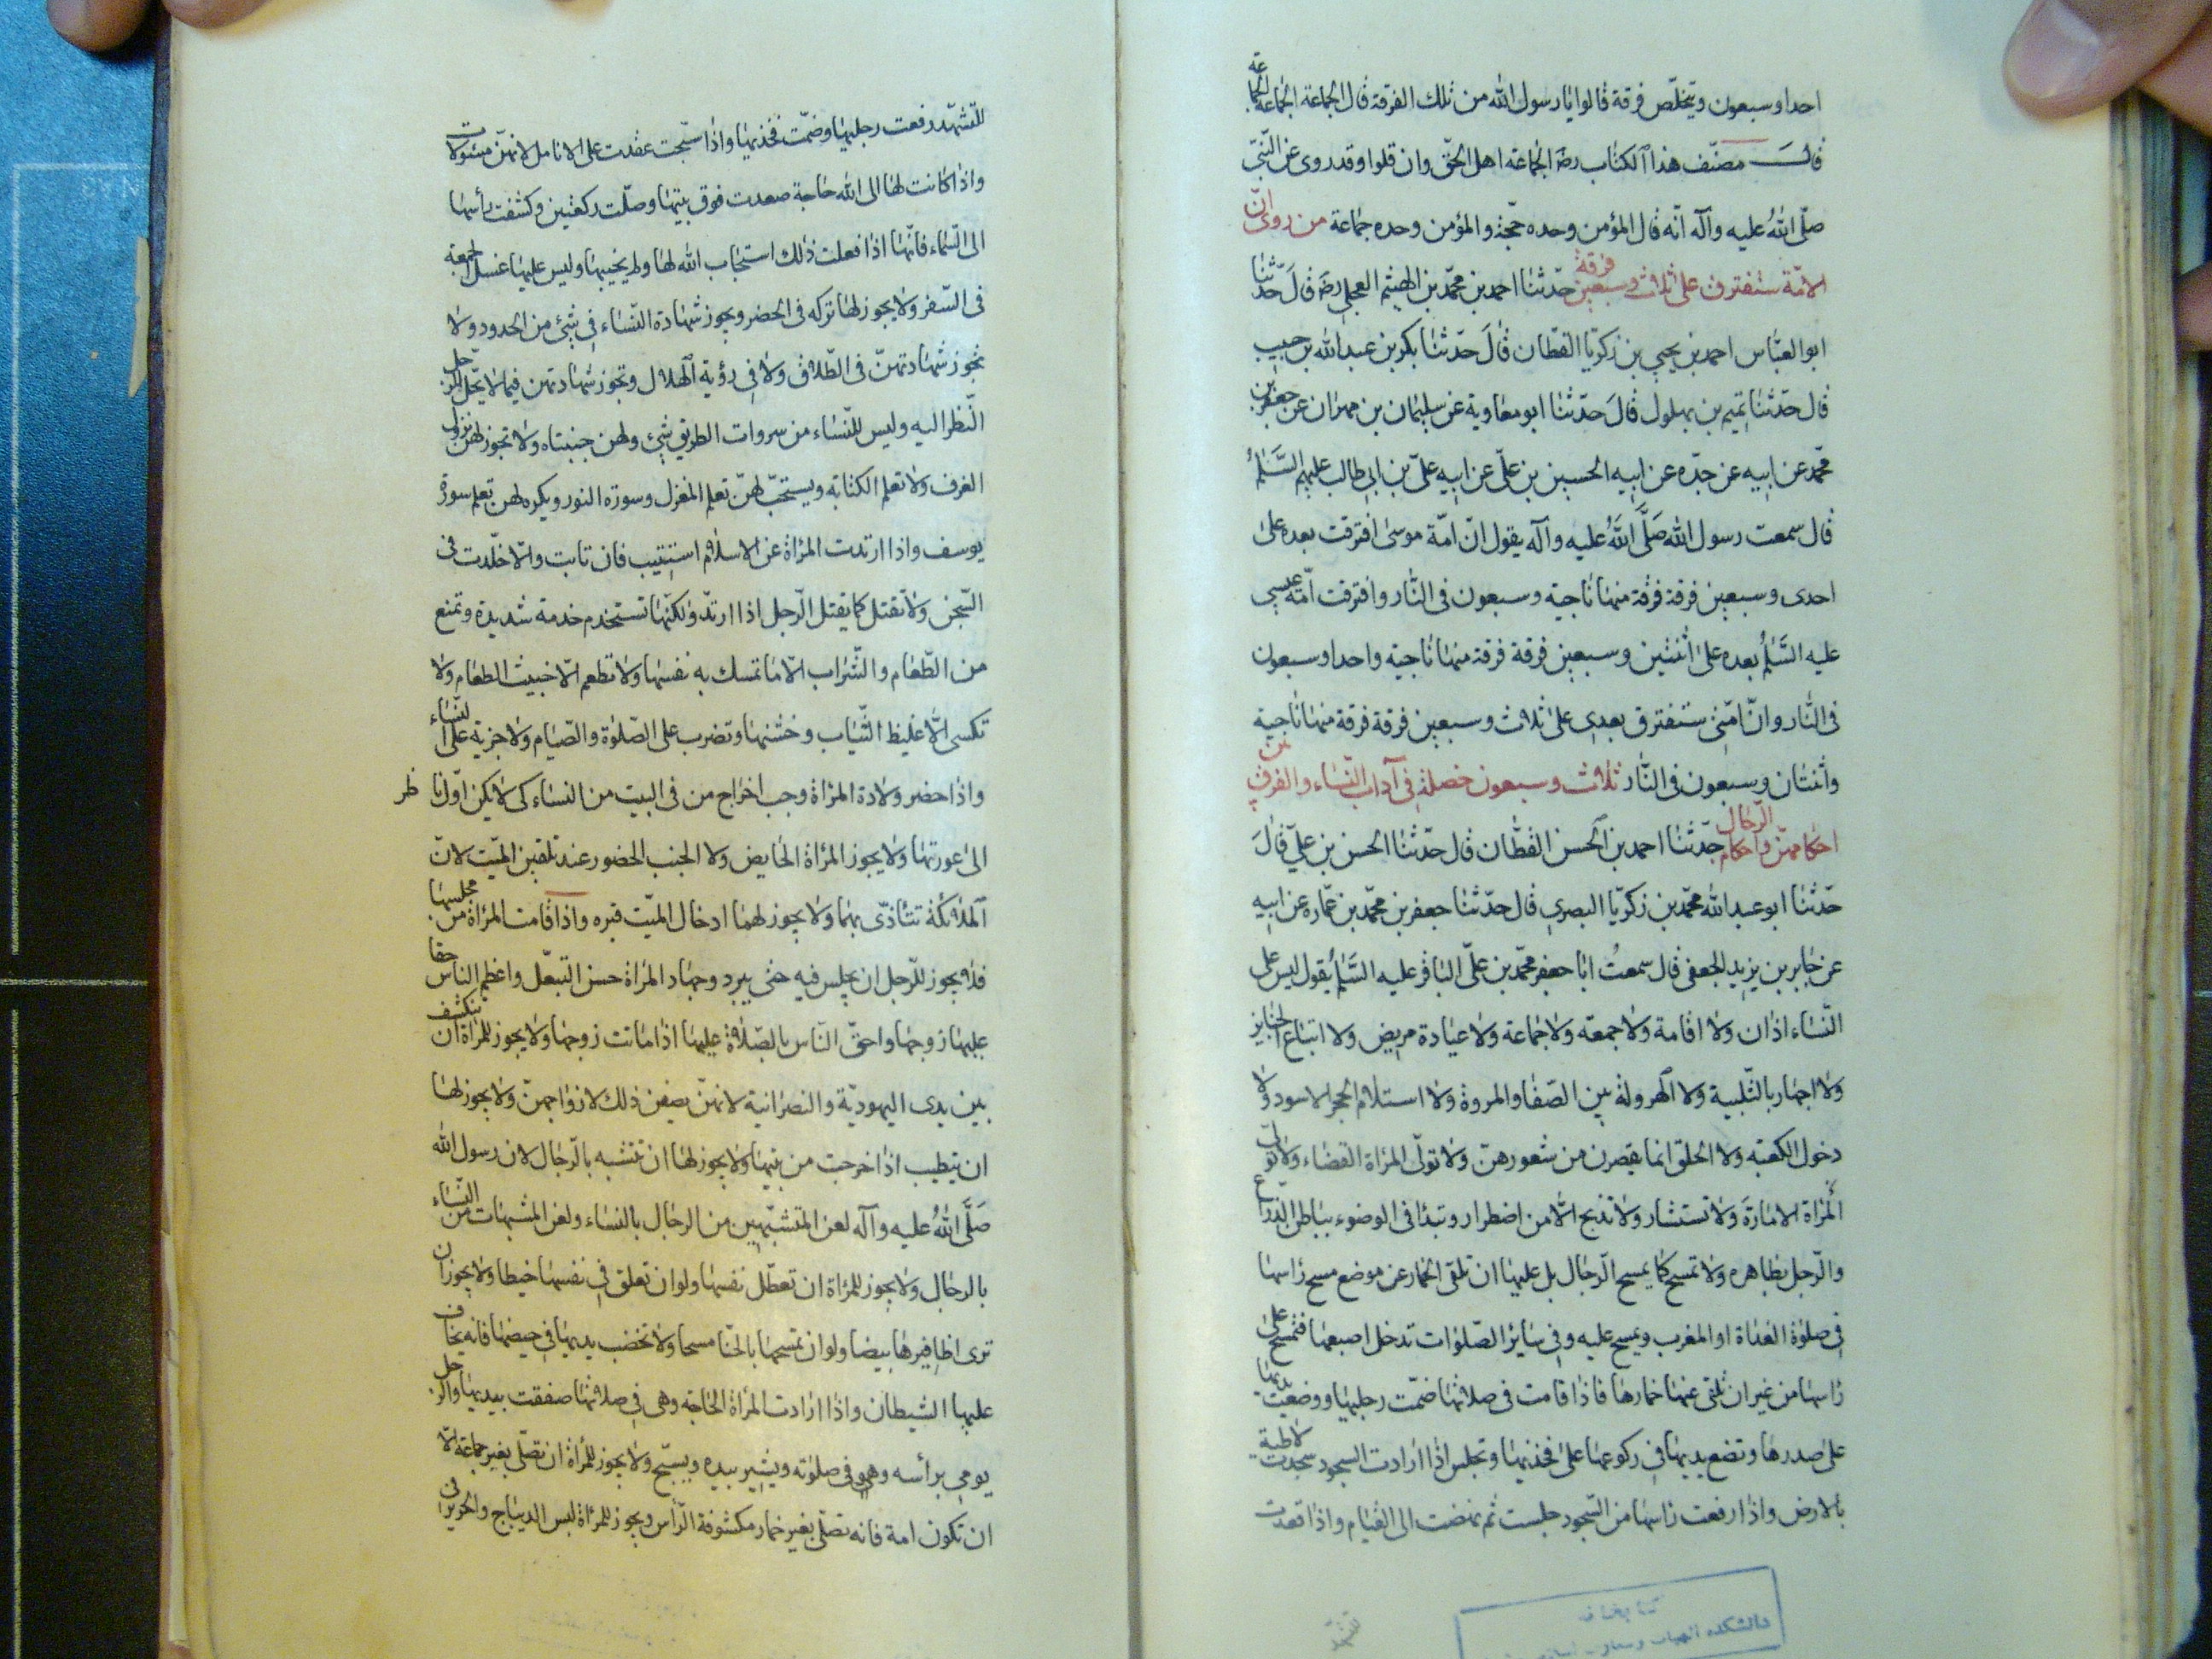 احدا وسبعون ويتخلّص فرقة قالوا يا رسول الله من تلك الفرقة قال الجماعة الجماعة الجماعة
قال مصنّف هذا الكتاب رضه الجماعة اهل الحقّ وان قلوا وقد روى عن النّبيّ
صلّى اللهُ عليه وآله انّه قال المؤمن وحده حجّة والمؤمن وحده جماعة من روى انّ
الامّة ستفترق على ثلاث وسبعين فرقة حدّثنا احمد بن محمّد بن الهيثم العجلى رضه قالَ حدّثنا
ابو العبّاس احمد بن يحيى بن زكريّا القطّان قالَ حدّثنا بكر بن عبد الله بن حبيب
قال حدّثنا تميم بن بهلول قالَ حدّثنا ابو معاوية عن سليمان بن مهران عن جعفر بن
محمّد عن ابيه عن جدّه عن ابيه الحسين بن علىّ عن ابيه علىّ بن ابى طالب عليهم السَّلٰمُ
قال سمعت رسول الله صَلَّى اللهُ عليه وآله يقول انّ امّة موسى افترقت بعده على
احدى وسبعين فرقة فرقة منها ناجية وسبعون فى النّار وافترقت امّة عيسى
عليه السَّلٰمُ بعده على اثنتين وسبعين فرقة فرقة منها ناجية واحدا وسبعون
فى النّار وانّ امّتى ستفترق بعدى على ثلاث وسبعين فرقة فرقة منها ناجية
واثنتان وسبعون فى النّار ثلاث وسبعون خصلة فى آداب النّساء والفرق بين
احكامهنّ واحكام الرّجال حدّثنا احمد بن الحسن القطّان قال حدّثنا الحسن بن علىّ قالَ
حدّثنا ابو عبد الله محمّد بن زكريّا البصرى قال حدّثنا جعفر بن محمّد بن عمّاره عن ابيه
عن جابر بن يزيد الجعفى قال سمعتُ ابا جعفر محمّد بن علىّ الباقر عليه السَّلٰمُ يقول ليس على
النّساء اذان ولا اقامة ولا جمعه ولا جماعة ولا عيادة مريض ولا اتباع الجنايز
ولا اجهار بالتّلبية ولا الهرولة بين الصّفا والمروة ولا استلام الحجر الاسود ولا
دخول الكعبه ولا الحلق انما يقصرن من شعورهنّ ولا تولّى المرأة القضاء ولا تولّى
المرأة الامارَة ولا تستشار ولا تذبح الّا من اضطرار وتبدأ فى الوضوء بباطن الذّراع
والرّجل بظاهره ولا تمسح كما يمسح الرّجال بل عليها ان تلقى الخمار عن موضع مسح رأسها
فى صلوٰة الغداة او المغرب ويمسح عليه وفى ساير الصّلوات تدخل اصبعها فتمسح على
رأسها من غير ان تلقى عنها خمارها فاذا قامت فى صلاتها ضمّت رجليها ووضعت يديها
على صدرها وتضع يديها فى ركوعها على فخذيها وتجلس اذا ارادت السجود سجدت لاطية
بالارض واذا رفعت رأسها من السّجود جلست ثم نهضت الى القيام واذا قعدت
للتشهد
للتّشهّد رفعت رجليها وضمّت فخذيها واذا سبّحت عقدت على الانامل لانهنّ مسئولات
واذا كانت لها الى الله حاجة صعدت فوق بيتها وصلّت ركعتين وكشفت رأسها
الى السّماء فانّها اذا فعلت ذلك استجاب الله لها ولم يخيبها وليس عليها غسل الجمعة
فى السّفر ولا يجوز لها تركه فى الحضر ويجوز شهادة النّساء فى شئ من الحدود ولا
تجوز شهادتهنّ فى الطّلاق ولا فى رؤية الهلال وتجوز شهادتهن فيما لا يحّل للرّجل
النّظر اليه وليس للنّساء من سروات الطريق شئ ولهن جنبتاه ولا تجوز لهن نزول
الغرف ولا تعلم الكتابه ويستحبّ لهنّ تعلم المغزل وسورة النور ويكره لهن تعلم سورة
يوسف واذا ارتدت المرأة عن الاسلام استتيب فان تابت والّا خلّدت فى
السّجن ولا تقتل كما يقتل الرّجل اذا ارتدّ ولكنّها تستخدم خدمة شديدة وتمنع
من الطّعام والشّراب الّا ما تمسك به نفسها ولا تطعم الّا خبيث الطعام ولا
تكسى الّا غليظ الثّياب وخشنها وتضرب على الصّلوٰة والصّيام ولا جزية على النّساء
واذا حضر ولادة المرأة وجب اخراج من فى البيت من النساء كى لا يكن اوّل نا ظر
الى عورتها ولا يجوز المرأة الحايض ولا الجنب الحضور عند تلقين الميّت لانّ
الملائكة تتأذّى بهما ولا يجوز لهما ادخال الميّت قبره واذا قامت المرأة من مجلسها
فلا يجوز للرّجل ان يجلس فيه حتى يبرد وجهاد المرأة حسن التبعّل واعظم الناس حقا
عليها زوجها واحقّ النّاس بالصّلاة عليها اذا ماتت زوجها ولا يجوز للمرأة ان تنكشف
بين يدى اليهوديّة والنصرانية لانهنّ يصفن ذلك لازواجهنّ ولا يجوز لها
ان يتطيب اذا خرجت من بيتها ولا يجوز لها ان تتشبه بالرّجال لان رسول الله
صَلَّى اللهُ عليه وآله لعن المتشبّهين من الرجال بالنساء ولعن المشبهات من النّساء
بالرجال ولا يجوز للمرأة ان تعطّل نفسها ولو ان تعلق فى نفسها خيطا ولا يجوز ان
ترى اظافيرها بيضا ولو ان تمسحها بالحنّا مسحا ولا تخضب يديها فى حيضها فانه يخاف
عليها الشيطان واذا ارادت المرأة الحاجه وهى فى صلاتها صفقت بيديها والرّجل
يومى برأسه وهو فى صلوٰته ويشير بيده ويسبّح ولا يجوز للمرأة ان تصلّى بغير خمار الّا
ان تكون امة فانه تصلّى بغير خمار مكشوفة الرّأس ويجوز للمرأة لبس الديباج والحرير فى
كتابخانه
دانشكده الهيات و معارف اسلامى